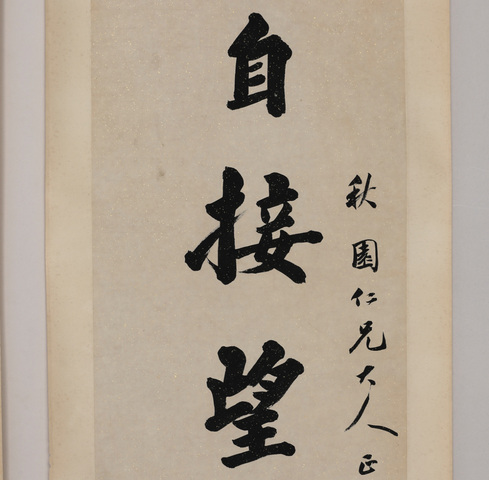 秋園仁兄大人正
自接望